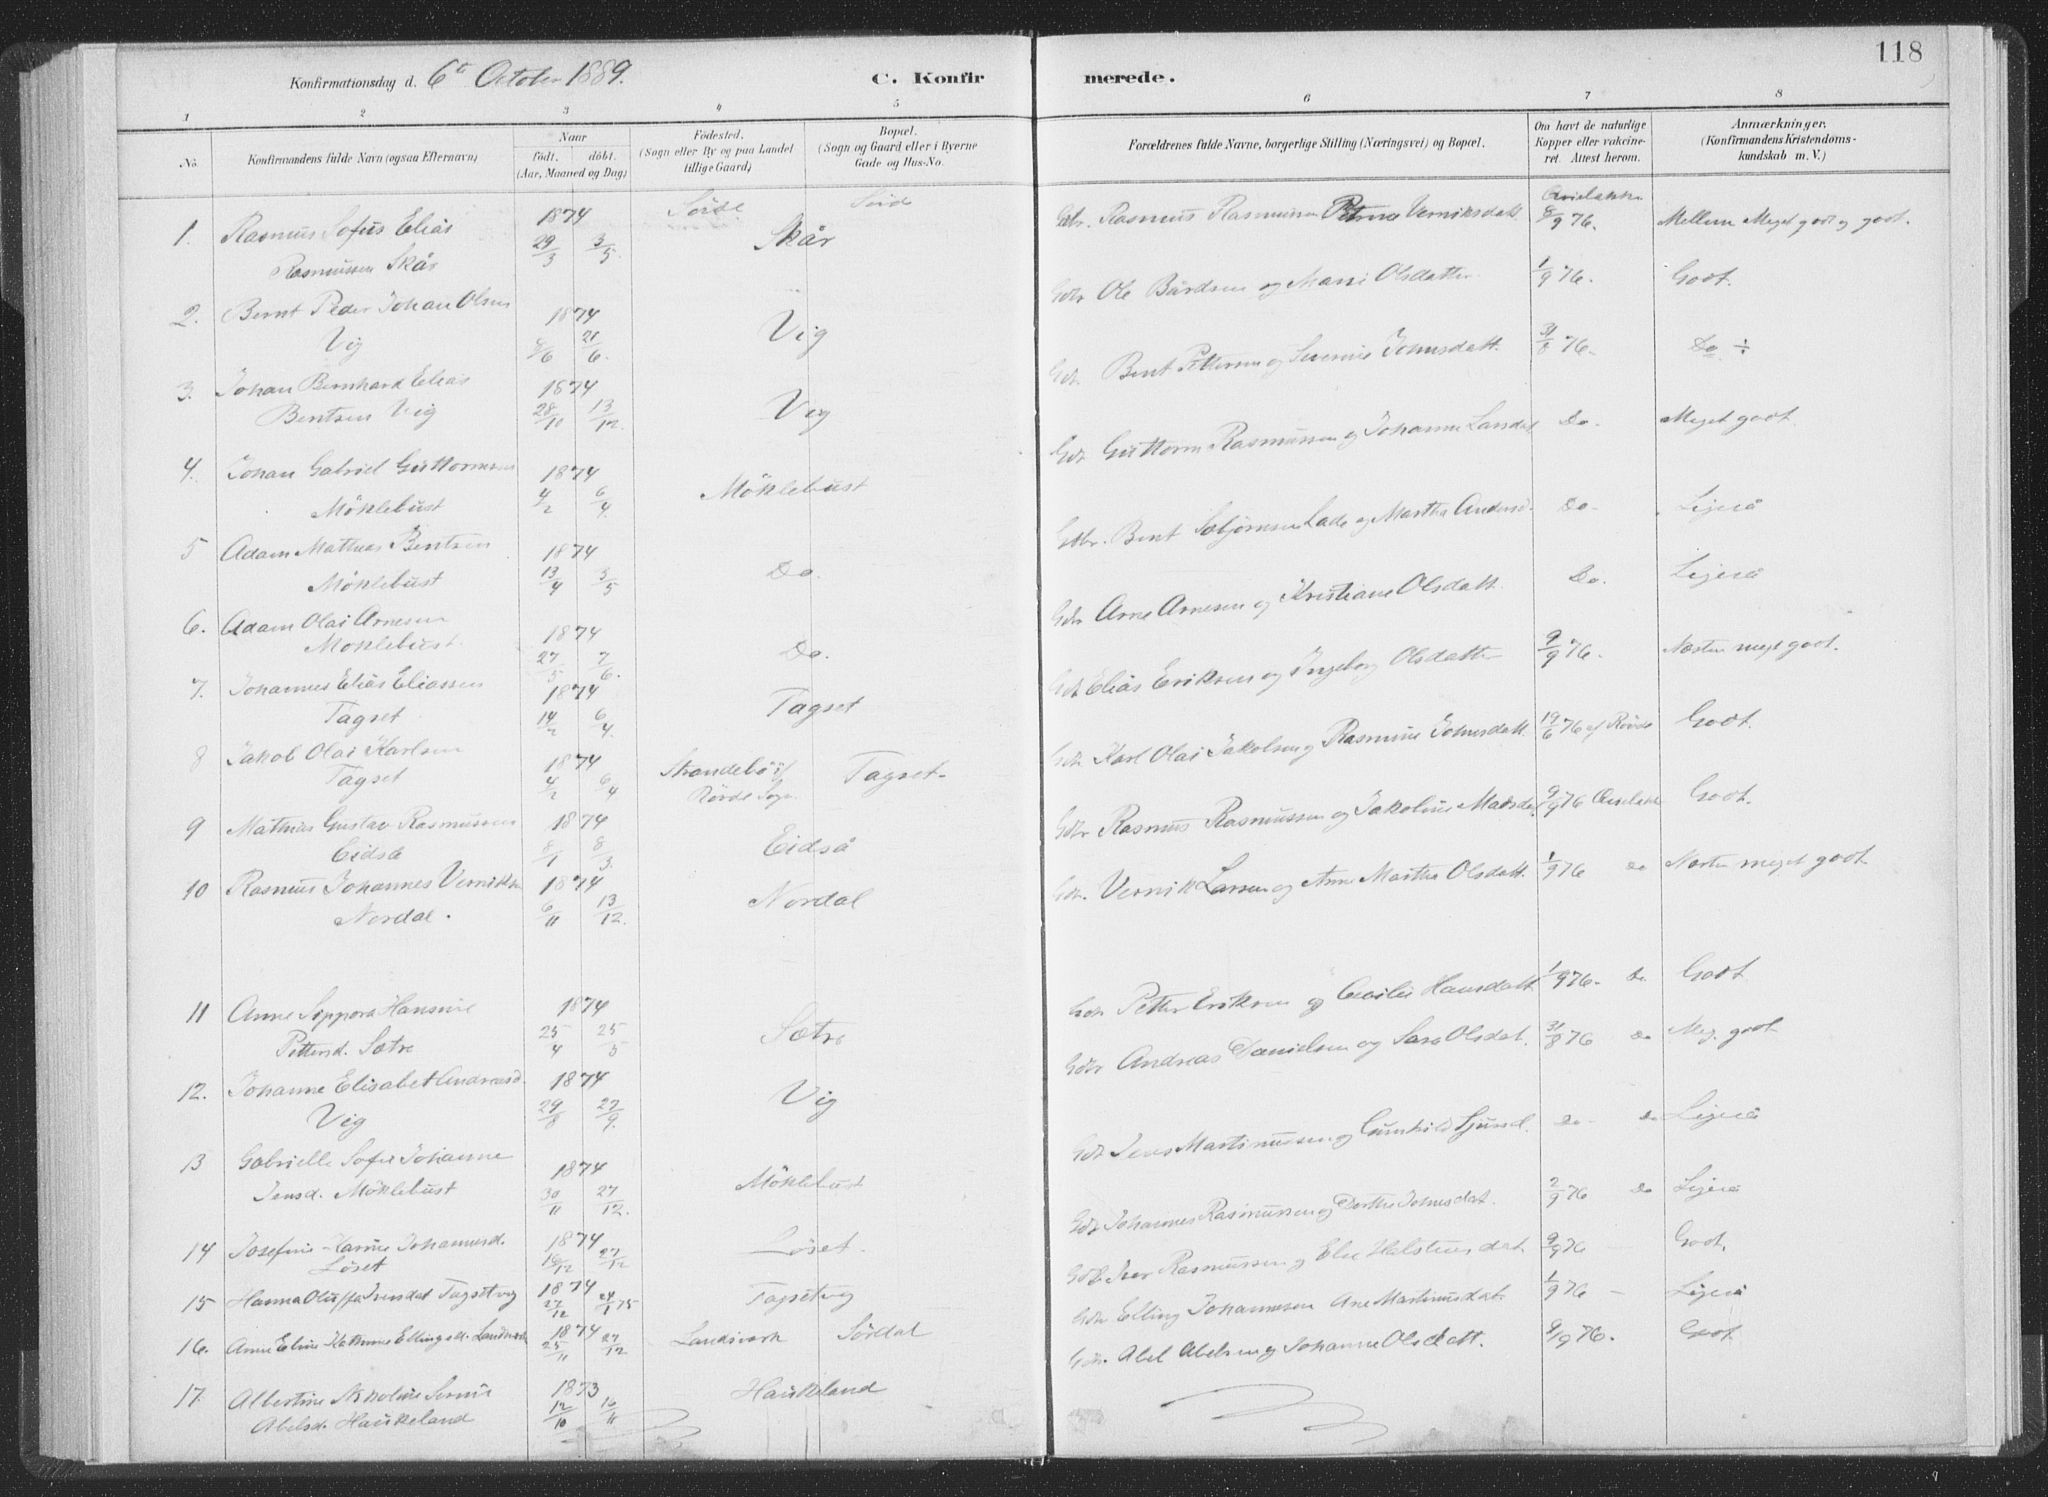 118
Konfirmationsdag d. 6te October 1889.
C. Konfirmerede.
1 2 3 4 5 6 7 8
No.
Konfirmandens fulde Navn (ogsaa Efternavn)
Naar
født. døbt.
(Aar, Maaned og Dag)
Fødested.
(Sogn eller By og paa Landet
tillige Gaard)
Bopæl.
(Sogn og Gaard eller i Byerne
Gade og Hus-No.
Forældrenes fulde Navne, borgerlige Stilling (Næringsvei) og Bopæl.
Om havt de naturlige
Kopper eller vakcine-
ret. Attest herom.
Anmærkninger.
(Konfirmandens Kristendoms-
kundskab m. V.)
1. Rasmus Sofus Elias 1874
Rasmussen Skår 29/3 3/5. Skår
Rasmus Rasmussen Verniksdatt 8/9 76. Mellem Meget godt og godt.
2. Bernt Peder Johan Olsen 1874
Vig 8/6 21/6. Vig
Gdbr Ole Bårdsen og Marie Olsdatter 1/9 76. Godt.
3. Johan Bernhard Elias 1874
Bentsen Vig 28/10 13/12. Vig
Gdr. Bent Pettersen og Severine Johnsdatt. 31/8 76. Do ÷
4. Johan Gabriel Guttormsen 1874
Möklebust 4/2 6/4. Möklebust
Gdr Guttorm Rasmussen og Johanne Larsdat Do. Meget godt.
5 Adam Mathias Bentsen 1874
Möklebust 13/4 3/5 Do.
Gdbr. Bent Lade og Martha Andersd. Do. Ligeså
6. Adam Olai Arnesen 1874
Möklebust. 27/5 7/6. Do.
Gdr Arne Arnesen og Kristiane Olsdatt. Do. Ligeså
7. Johannes Elias Eliassen 1874
Tagset 14/2 6/4. Tagset
Gdr Elias Eriksen og Ingeborg Olsdatter 9/9 76. Næsten meget godt.
8 Jakob Olai Karlsen 1874
Tagset 4/2 6/4 Rövde Sogn. Tagset
Gdr Karl Olai Jakobsen og Rasmine Johnsdatt. 19/6 76 af Rövde Godt.
9 Mathias Gustav Rasmussen 1874
Eidså 8/1 8/3. Eidså
Gdbr Rasmus Rasmussen og Jakobine Madsdat 9/9 76 Godt.
10 Rasmus Johannes Verniksen 1874
Nordal. 6/11 13/12. Nordal
Gdr. Vernik Larsen og Anne Martha Olsdatt. 1/9 76 do Næsten meget godt.
11 Anne Sippora Hansine 1874
Pettersd. Sætre 25/4 25/5 Sætre
Gdr Petter Eriksen og Cecilie Hansdatt 1/9 76. do Godt
12. Johanne Elisabet Andreasd. 1874
Vig 29/8 27/9. Vig
Gdbr Andreas Danielsen og Sara Olsdat. 31/8 76 do Meg. godt
13 Gabrielle Sofie Johanne 1874
Jensd. Möklebust 30/11 27/12. Möklebust
Gdr Jens Martinussen og Gunhild Do. do Ligeså
14 Josefine Karine Johannesd. 1874
Löset 27/12 Löset.
Gdr Johannes Rasmussen og Dorthe Johnsdat. 2/9 76 Do Ligeså
15 Hanna Oluffa Iversdat Tagsetvig 1874
27/12 24/1 75 Tagsetvig
Gdbr Iver Rasmussen og Else Halstensdat. 9/9 76 — Godt.
16. Anne Eline Ellingsd. Landsværk 1874
25/11 27/12 Landsværk Sördal
Gdr Elling Johannesen Ane Martinusdat. 1/9 76 — Ligeså
17. Albertine Nikoline 1873
Abelsd. Haukeland 12/10 16/11 Haukeland
Gdr. Abel Abelsen og Johanne Olsdatt. 9/9 76. Godt